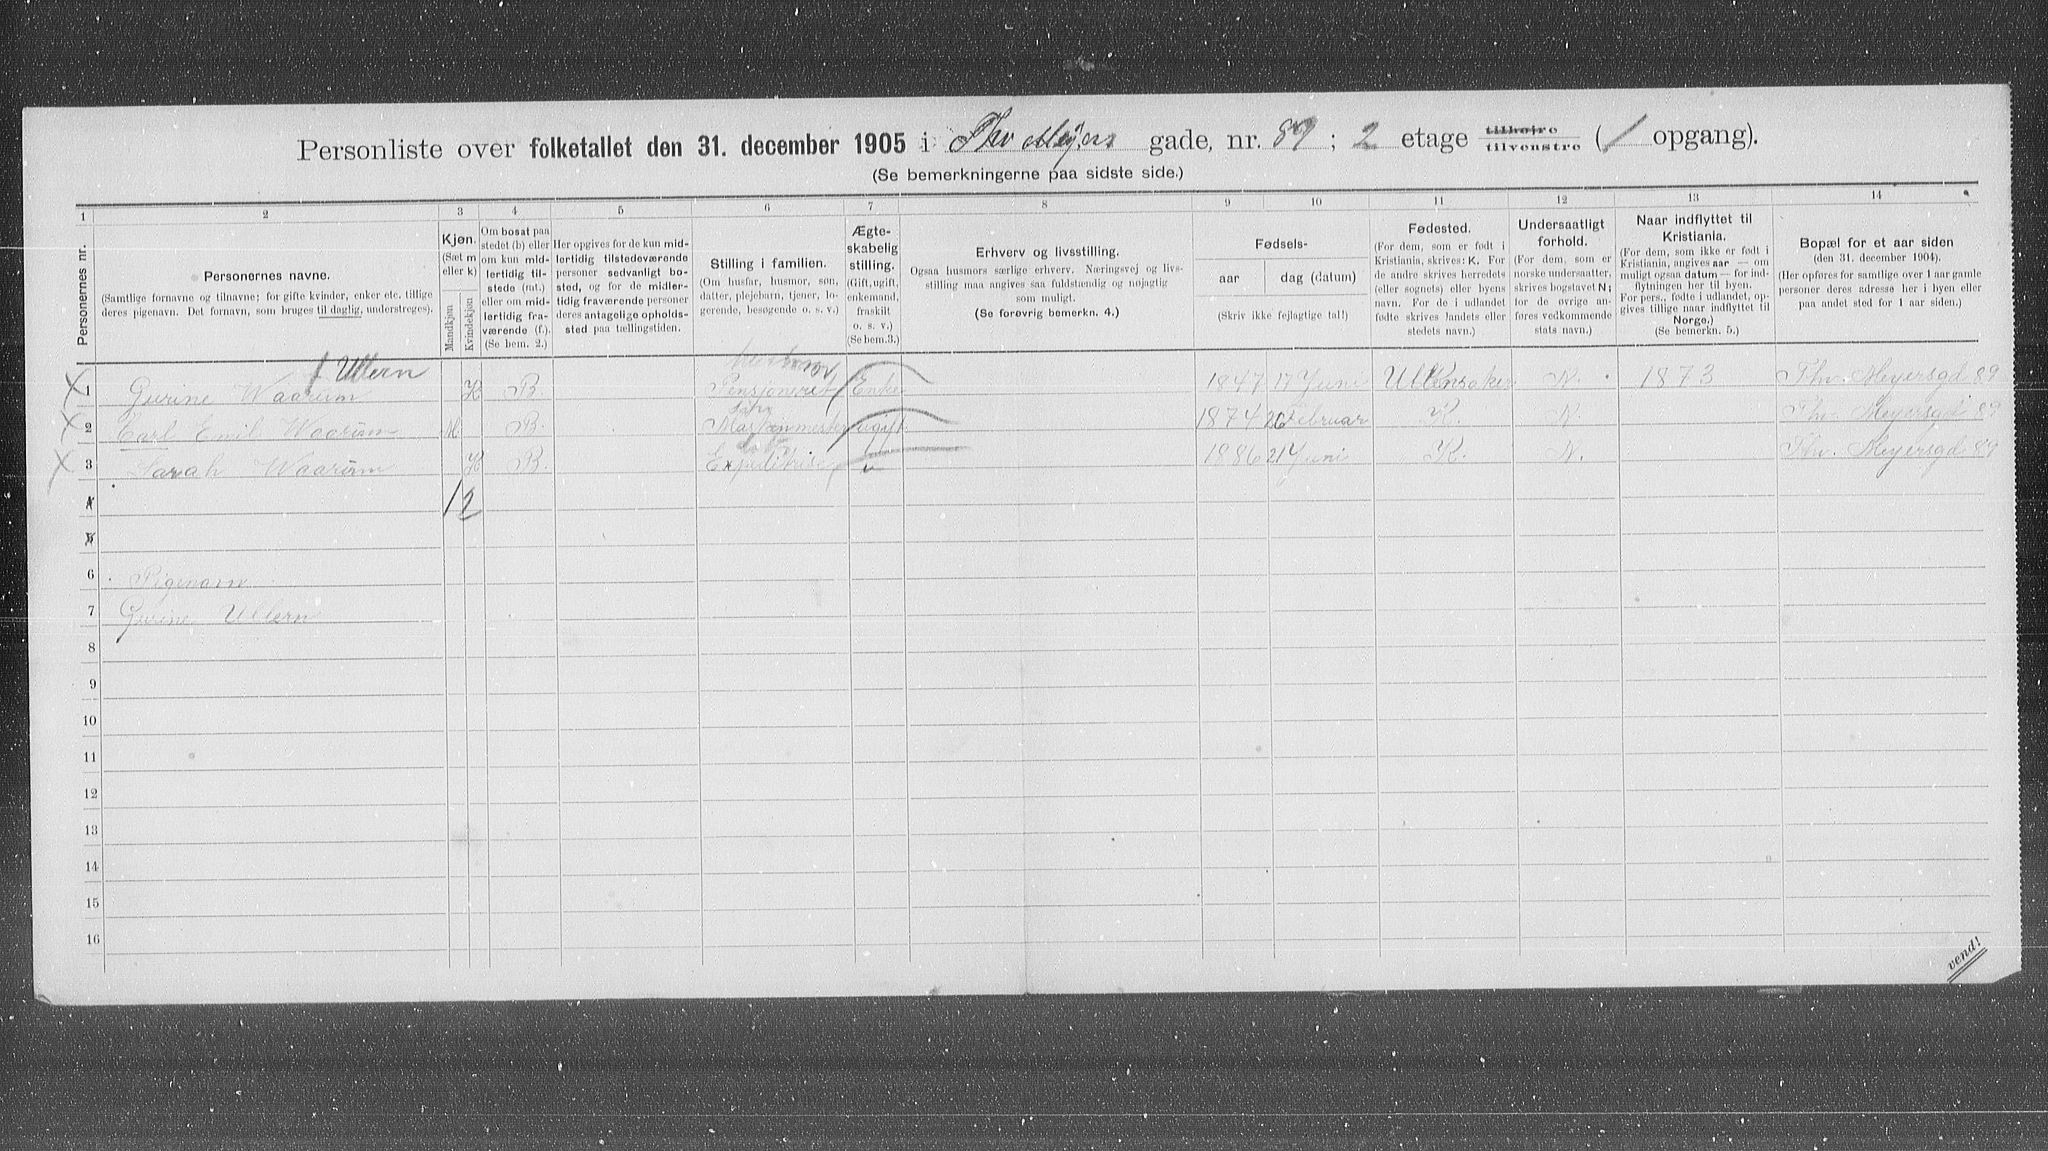 Personliste over folketallet den 31. december 1905 i Thv Meyers gade, nr. 89; 2 etage tilhøjre tilvenstre (1 opgang).
(Se bemerkningerne paa sidste side.)
1 2 3 4 5 6 7 8 9 10 11 12 13 14
Personernes nr.
Personernes navne.
(Samtlige fornavne og tilnavne; for gifte kvinder, enker etc. tillige deres pigenavn. Det fornavn, som bruges til daglig, understreges).
Kjøn.
(Sæt m eller k)
Mandkjøn
Kvindekjøn
Om bosat paa stedet (b) eller om kun midlertidig tilstede (mt.) eller om midlertidig fraværende (f.). (Se bem. 2.)
Her opgives for de kun midlertidig tilstedeværende personer sedvanligt bosted, og for de midlertidig fraværende personer deres antagelige opholdssted paa tællingstiden.
Stilling i familien.
(Om husfar, husmor, søn, datter, plejebarn, tjener, logerende, besøgende o. s. v.)
Ægteskabelig stilling.
(Gift, ugift, enkemand, fraskilt o. s. v.) (Se bem.3.)
Erhverv og livsstilling.
Ogsaa husmors særlige erhverv. Næringsvej og livsstilling maa angives saa fuldstændig og nøjagtig som muligt.
(Se forøvrig bemerkn. 4.)
Fødsels-
aar
dag (datum)
(Skriv ikke fejlagtige tal!)
Fødested.
(For dem, som er født i Kristiania, skrives: K. For de andre skrives herredets (eller sognets) eller byens navn. For de i udlandet fødte skrives landets eller stedets navn.)
Undersaatligt forhold.
(For dem, som er norske undersaatter, skrives bogstavet N; for de øvrige anføres vedkommende stats navn.)
Naar indflyttet til Kristiania.
(For dem, som ikke er født i Kristiania, angives aar — om muligt ogsaa datum — for indflytningen her til byen. For pers., fødte i udlandet, opgives tillige naar indflyttet til Norge.)
(Se bemerkn. 5.)
Bopæl for et aar siden
(den 31. december 1904).
(Her opføres for samtlige over 1 aar gamle personer deres adresse her i byen eller paa andet sted for 1 aar siden.)
f Ullern
1 Gurine Waarum K B. Pensjoneret Enke 1847 17 Juni Ullensaker N. 1873 Thv. Meyersgd 89
søn
2 Carl Emil Waarum M B. Maskinmester ugift 1874 26 Februar K. N. Thv. Meyersgd 89
3 Sarah Waarum K B. u 1886 21 Juni K. N. Thv. Meyersgd 89
4 1 2
5
6 Pigenavn
7 Gurine Ullern
8
9
10
11
12
13
14
15
16
vend!